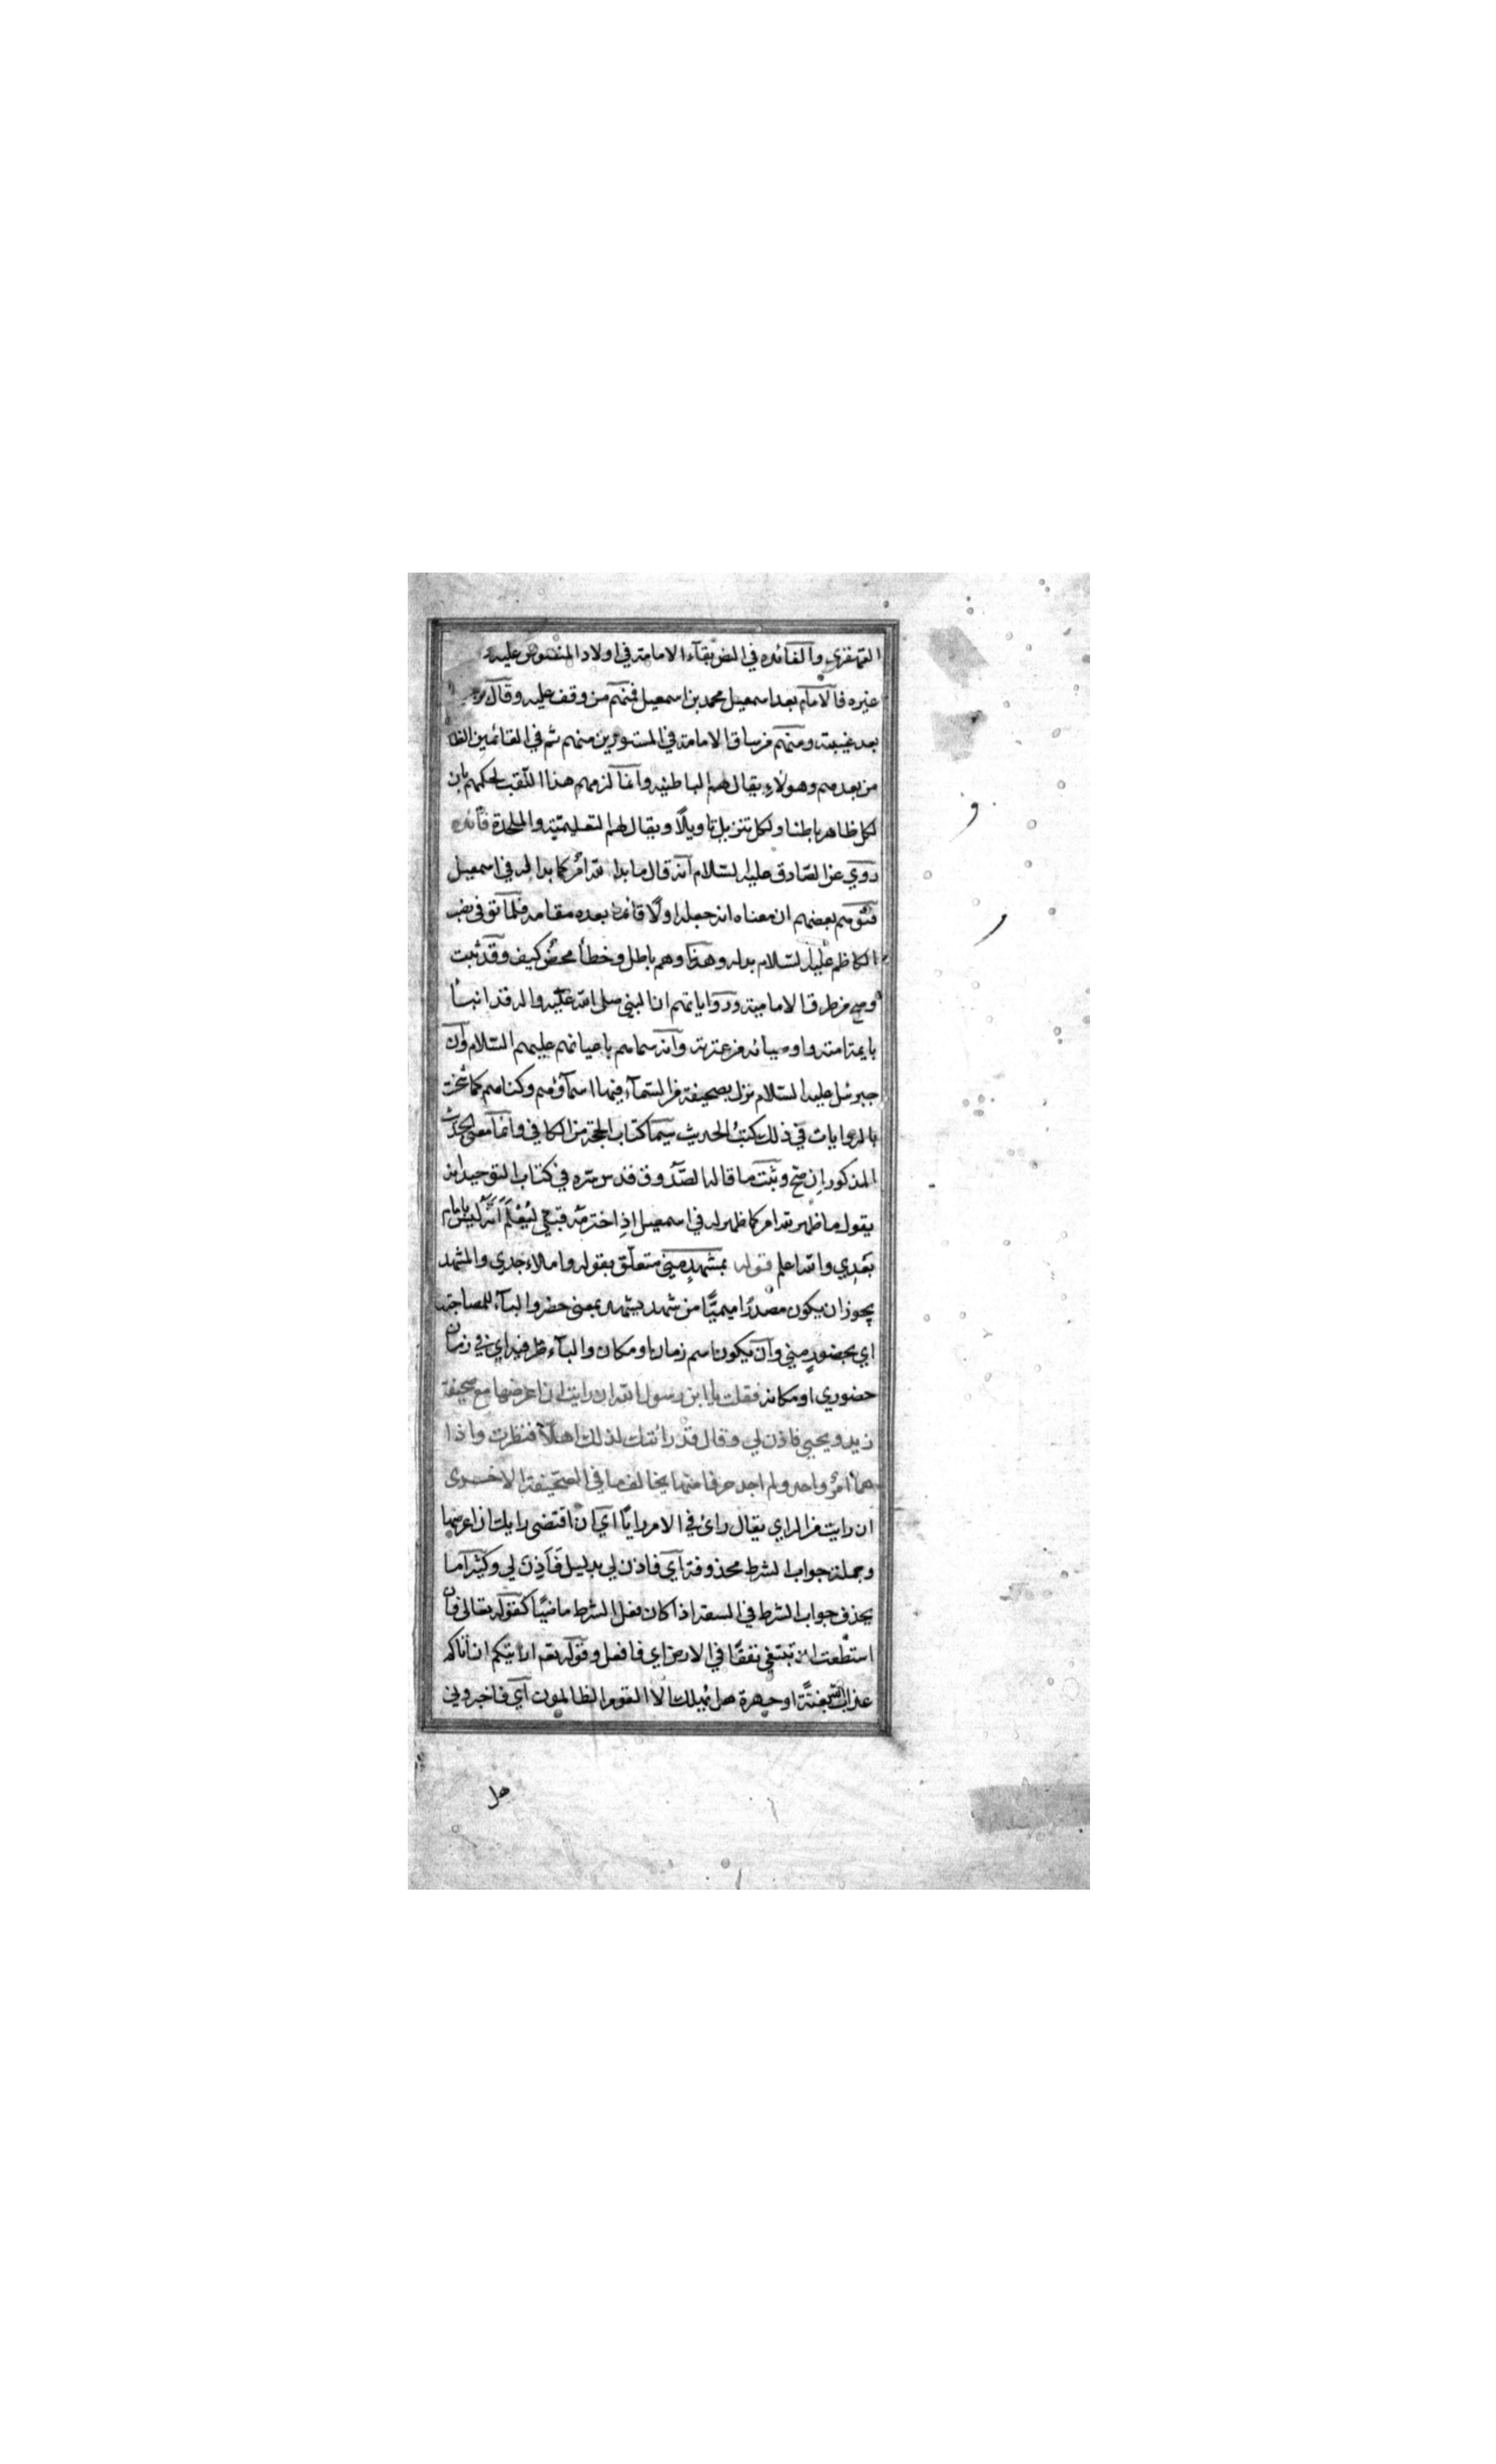 القهقرى والفائدة في النص بقآء الامامة في اولاد المنصوص عليه
غيره فالامام بعد اسمعيل محمد بن اسمعيل فمنهم من وقف عليه وقال
بعد غيبته ومنهم من ساق الامامة في المستورين منهم ثم في القائمين
من بعدهم وهولاء يقال لهم الباطنيه وانما لزمهم هذا اللقب لحكمهم بان
لكل ظاهر باطنا ولكل تنزيل تاويلًا ويقال لهم التعليميّة والملحدة فائده
روي عن الصّادق عليه السّلام انه قال ما بدا لله امرٌ كما بدا له في اسمعيل
فتوهم بعضهم ان معناه انه جعله اولًا قائما بعده مقامه فلما توفى نصب
الكاظم عليه السّلام بدله وهذا وهم باطل وخطأ محضٌ كيف وقد ثبت
وصح من طرق الامامية ورواياتهم ان النبي صلى الله عليه واله قد انبأ
بايمة امته واوصيائه من عترته وانه سماهم باعيانهم عليهم السّلام وان
جبرئيل عليه السّلام نزل بصحيفة من السّمآء فيها اسمآؤهم وكناهم كما شحنت
بالروايات في ذلك كتبُ الحديث سيما كتاب الحجة من الكافي وانما معنى الحديث
المذكور ان صح وثبت ما قاله الصّدوق قدس سره في كتاب التوحيد انه
يقول ما ظهر لله امر كما ظهر له في اسمعيل اذِ اخترمه قبلي ليُعْلَمَ انَّه ليس بامام
بَعْدِي والله اعلم قوله بمشهدٍ منّي متعلّق بقوله واملاء جدي والمشهد
يجوز ان يكون مصْدرًا ميميًّا من شهد يشهد بمعنى حضر والبآء للمصاحبة
اي بحضورٍ منّي وان يكون اسم زمان او مكان والبآء ظرفيه اي في زمان
حضوري او مكانه فقلت يا ابن رسول الله ان رايت ان اعرضها مع صحيفة
زيد ويحيى فاذن لي وقال قد رأيتك لذلك اهلًا فنظرت واذا
هما امرٌ واحد ولم اجد حرفا منها يخالف ما في الصّحيفة الاخرى
ان رايت من الراي يقال رائ في الامر رايًا اي ان اقتضى رايك ان اعرضها
وجملة جواب الشرط محذوفة اي فاذن لي بدليل فَاَذِنَ لي وكثيرًا ما
يحذف جواب الشرط في السعة اذا كان فعل الشرط ماضيًا كقوله تعالى فان
استطعت ان تبتغي نفقًا في الارض اي فافعل وقوله تعم ارايتكم ان أتاكم
عذاب الله بغتةً او جهرة هل يُهلك الا القوم الظالمون اي فاخبروني
هل